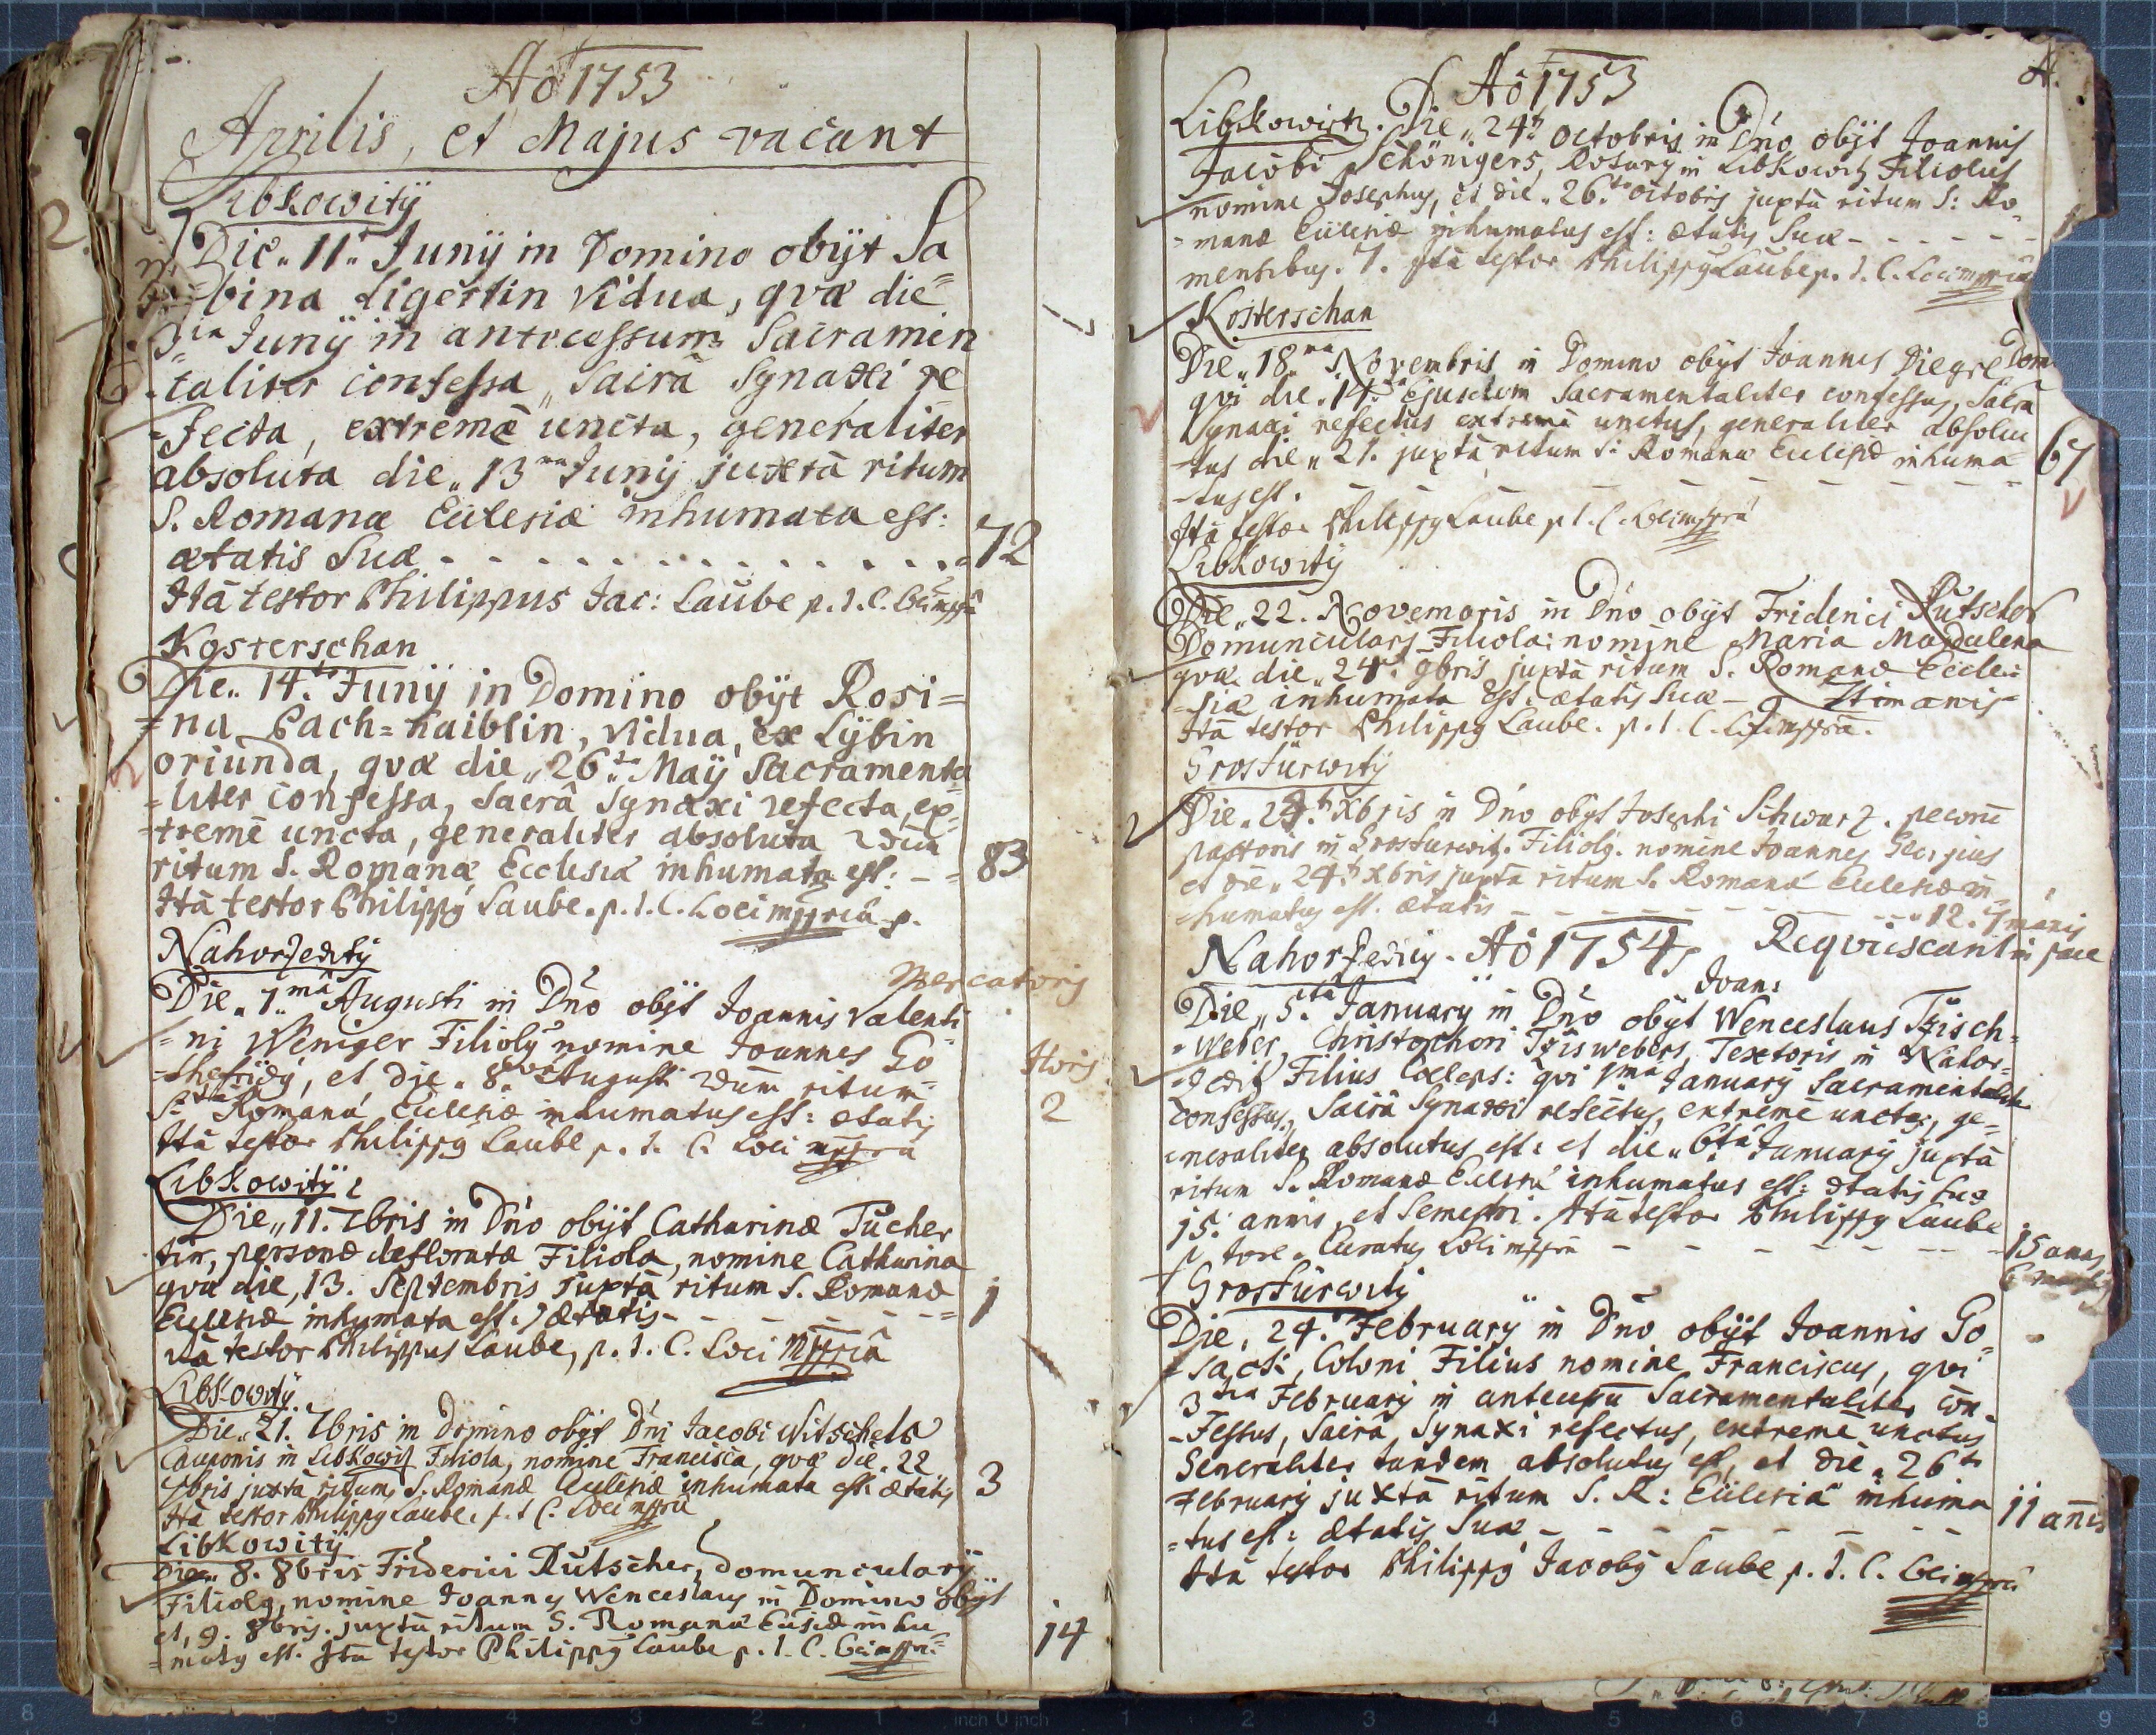 Aõ 1753
Aprilis, et Majus vacant
Libkowitÿ
Die „ 11. Junÿ in Domino obÿt Sa
bina Ligertin Vidua, qvæ die
Junÿ in antecessum Sacramen
taliter confessa, Sacrâ Synaxi re
-fecta, extremè uncta, generaliter
absoluta die „ 13 Junÿ juxtà ritum
S. Romanæ Ecclesiæ inhumata est:
ætatis Suæ - - - - 72
Ità testor Philippus Jac: Laube p. t. C. Loci mppriâ
Kosterschan
Die „ 14. Junÿ in Domino obÿt Rosi=
=na Bach=haiblin, Vidua, ex Lÿbin
oriunda, qvæ die „ 26 Maÿ Sacramenta
=liter confessa, Sacrâ Synaxi refecta, ex-
-tremè uncta, generaliter absoluta
ritum S. Romanæ Ecclesiæ inhumata est: - = 83
Ità testor Philippy Laube. p. t. C. Loci mppriâ
Nahorzeditÿ
Mercatoris
Die „ 1.mâ Augusti in Dño obÿt Joannis Valenti
=ni Weniger Filioly nomine Joannes Go
=thefridy, et die „ 8. Augusti ritum
S. Romanæ Ecclesiæ inhumatus est: ætatis Horis 2
Ità testor Philippy Laube p. t. C. Loci mppria
Libkowitÿ
Die „ 11. 7bris in Dño obÿt Catharinæ Tücher
tin, personæ defloratæ Filiola, nomine Catharina
qvæ die, 13. Septembris Juxtà ritum S. Romanæ
Ecclesiæ inhumata est. ætatis - - - 1
Ità testor Philippus Laube, p. t. C. Loci Mppriâ
Libkowitÿ
Die „ 21. 7bris in Domino obÿt Dñi Jacobi Witschels
Cauponis in Libkowitz Filiola, nomine Francisca, qvæ die „ 22
7bris juxtà ritum S. Romanæ Ecclesiæ inhumata est: ætatis 3
Ità testor Philippy Laube. p. t. C. Loci mppriâ
Libkowitÿ
Die „ 8. 8bris Friderici Rutscher, domuncularÿ
Filioly, nomine Joannes Wenceslaus in Domino obÿt
et, 9. 8bris. juxtà ritum S. Romanæ inhu
=maty est. Ità testor Philippy Laube p. t. C. Loci mppr. 14
Aõ 1753
Libkowitz. Die „ 24. Octobris in Dño obÿt Joannis
Jacobi Schönigers, in Libkowitz Filiolus
nomine Josephus, et die „ 26. Octobris juxtà ritum S: Ro
=manæ Ecclesiæ inhumatus est: ætatis Suæ - - -
mensibus. 7. Ità testor Philippy Laube p. t. C. Loci mppriâ
Kosterschan
Die „ 18. Novembris in Domino obÿt Joannes Diegre Dom
qvi die „ 14. Ejusdem Sacramentaliter confessus, Sacrâ
Synaxi refectus extremè unctus, generaliter absolu
-tus die „ 21. juxtà ritum S: Romanæ Ecclesiæ inhuma 67
-tus est. - - -
Ità testor Philippy Laube p t. C. Loci mppriâ
Libkowitÿ
Die „ 22. Novembris in Dño obÿt Friderici Rutscher
Domuncularis Filiola: nomine Maria Magdalena
qvæ die „ 24. 9bris juxtà ritum S. Romanæ Eccle=
siæ inhumata est. ætatis Suæ -
Ità testor Philippy Laube. p. t. C. Loci mppriâ.
Grosfürwitÿ
Die „ 24. Xbris in Dño obÿt Josephi Schwarz.
pastoris in Grosfurwitz. Filioly. nomine Joannes Georgius
et die „ 24. Xbris juxtà ritum S. Romanæ Ecclesiæ in
=humatus est. ætatis - - - 12.
Reqviescant in pace
Nahorzediy. Aõ 1754
Joan:
Die „ 5.tâ Januarÿ in Dño obÿt Wenceslaus Tzisch=
=weber, Christophori Tziswebers, Textoris in Nahor=
=zeditz Filius Cœlebs: qvi 1mâ Januarÿ Sacramentaliter
confessus, Sacrâ Synaxi refectus, extremè unctus, ge=
=neraliter absolutus est: et die „ 6.tâ Januarÿ juxtà
ritum S. Romanæ Ecclesiæ inhumatus est: ætatis suæ
15. annis, et Semestri. Ità testor Philippy Laube
p. tore. Curatus Loci mppriâ - - - 15 annis
Grosfürwitÿ
Die, 24. Februarÿ in Dño obÿt Joannis Go
sacti, Coloni Filius nomine Franciscus, qvi
3tia Februarÿ in Sacramentaliter con
-fessus, Sacrâ Synaxi refectus, extremè unctus
Generaliter tandem absolutus est, et die „ 26
Februarÿ juxtà ritum S. R: Ecclesiæ inhuma
=tus est: ætatis suæ - - - 11 añis
Ità testor Philippy Jacoby Laube p. t. C. Loci mppriâ